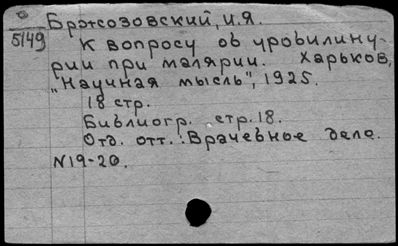 Бржозовский, И.Я.
5149
К вопросу об уробилину-
рии при малярии. Харьков,
"Научная мысль", 1925.
18 стр.
Библиогр. стр. 18.
Отд. отт.: Врачебное дело.
N19-20.